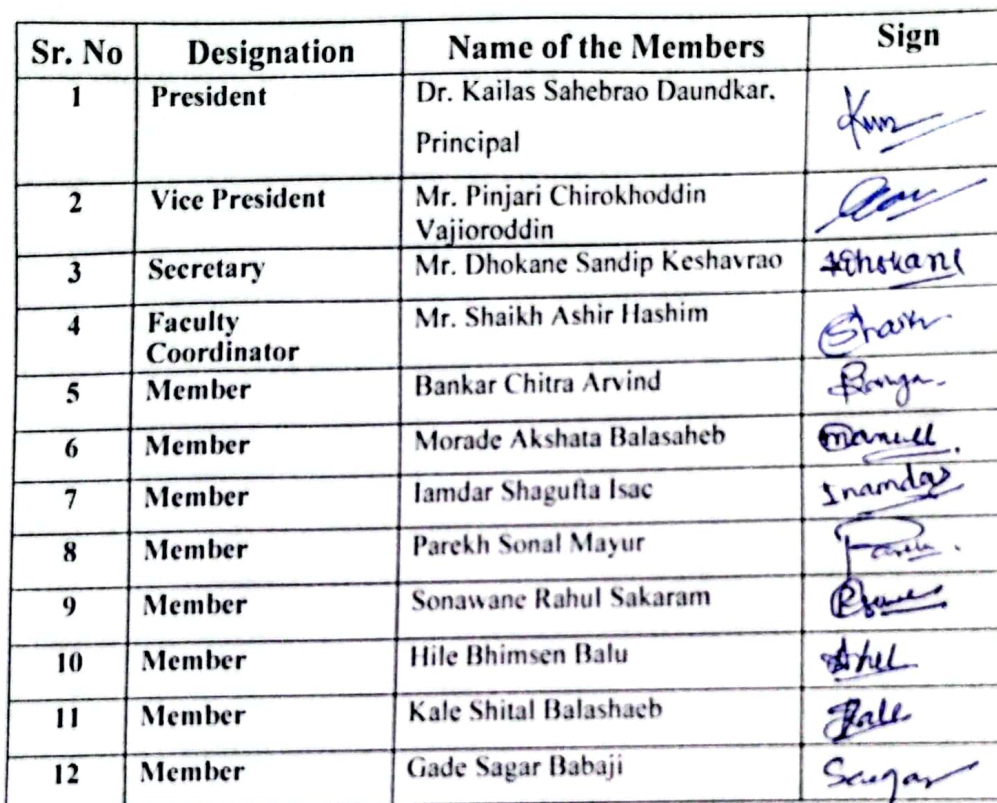 Sr. No Designation Name of the Members Sign
1 President Dr. Kailas Sahebrao Daundkar,
Principal
2 Vice President Mr. Pinjari Chirokhoddin
Vajioroddin
3 Secretary Mr. Dhokane Sandip Keshavrao
4 Faculty Mr. Shaikh Ashir Hashim Shaikh
Coordinator
5 Member Bankar Chitra Arvind
6 Member Morade Akshata Balasaheb
7 Member Iamdar Shagufta Isac Inamdar
8 Member Parekh Sonal Mayur
9 Member Sonawane Rahul Sakaram
10 Member Hile Bhimsen Balu
11 Member Kale Shital Balashaeb Kale
12 Member Gade Sagar Babaji Sagar